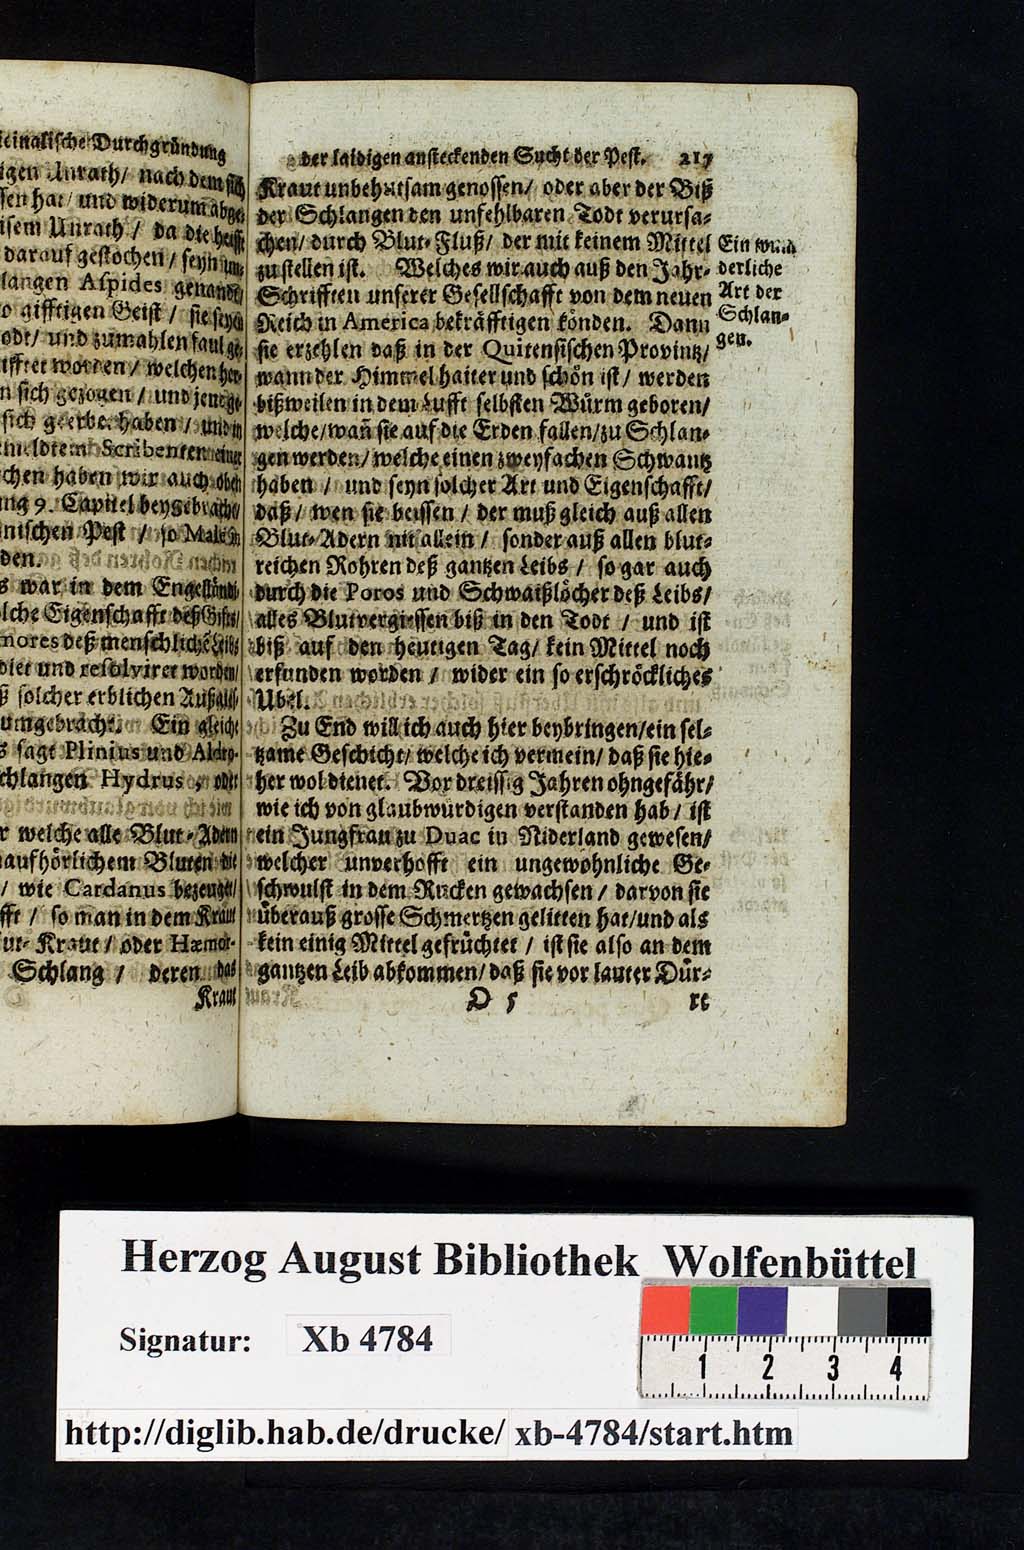 Durchgründung
nach dem sich
sen hat / und widerum
isem Unrath / da die
darauf gestochen / seyn
langen Aspides genandt
o gifftigen Geist / sie seyen
odt / und zumahlen faul
welchen
n sich gezogen / und
haben /
Scribenten
chen haben wir auch oben
ng 9. Capitel beygebracht
nischen Pest / so
den.
s war in dem
lche Eigenschafft deß Giffts
mores deß menschliche Leibs
diet und resolviret worden/
ß solcher erblichen
umgebracht. Ein gleiche
s sagt Plinius und
chlangen Hydrus, oder
r welche alle Blut-Adern
aufhörlichem Bluten die
/ wie Cardanus bezeuget/
fft / so man in dem Kraut
lut-Kraut / oder Hæmor-
Schlang / deren das
Kraut
der laidigen ansteckenden Sucht der Pest. 217
Kraut unbehutsam genossen / oder aber der Biß
der Schlangen den unfehlbaren Todt verursa-
chen / durch Blut-Fluß / der mit keinem Mittel
zu stellen ist. Welches wir auch auß den Jahr-
Schrifften unserer Gesellschafft von dem neuen
Reich in America bekräfftigen könden. Dann
sie erzehlen daß in der Quitensischen Provintz /
wann der Himmel haiter und schön ist / werden
bißweilen in dem Lufft selbsten Würm geboren /
welche / wañ sie auf die Erden fallen / zu Schlan-
gen werden / welche einen zweyfachen Schwantz
haben / und seyn solcher Art und Eigenschafft /
daß / wen sie beissen / der muß gleich auß allen
Blut-Adern nit allein / sonder auß allen blut-
reichen Rohren deß gantzen Leibs / so gar auch
durch die Poros und Schwaißlöcher deß Leibs /
alles Blut vergiessen biß in den Todt / und ist
biß auf den heutigen Tag / kein Mittel noch
erfunden worden / wider ein so erschröckliches
Ubel.
Zu End will ich auch hier beybringen / ein sel-
tzame Geschicht / welche ich vermein / daß sie hie-
her wol dienet. Vor dreissig Jahren ohngefähr /
wie ich von glaubwürdigen verstanden hab / ist
ein Jungfrau zu Duac in Niderland gewesen /
welcher unverhofft ein ungewohnliche Ge-
schwulst in dem Rucken gewachsen / darvon sie
überauß grosse Schmertzen gelitten hat / und als
kein einig Mittel gefrüchtet / ist sie also an dem
gantzen Leib abkommen / daß sie vor lauter Dür-
O 5 re
Ein wun-
derliche
Art der
Schlan-
gen.
Herzog August Bibliothek Wolfenbüttel
Signatur: Xb 4784
1 2 3 4
http://diglib.hab.de/drucke/ xb-4784/start.htm